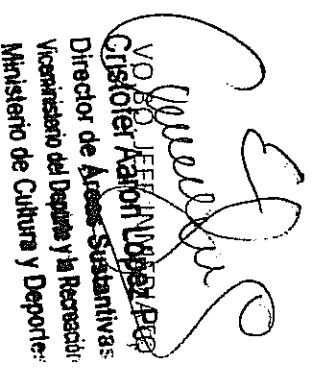 Vo. Bo. JEFE INMEDIATO
Cristofer Aaron López
Director de Áreas Sustantivas
Viceministerio del Deporte y la Recreación
Ministerio de Cultura y Deportes